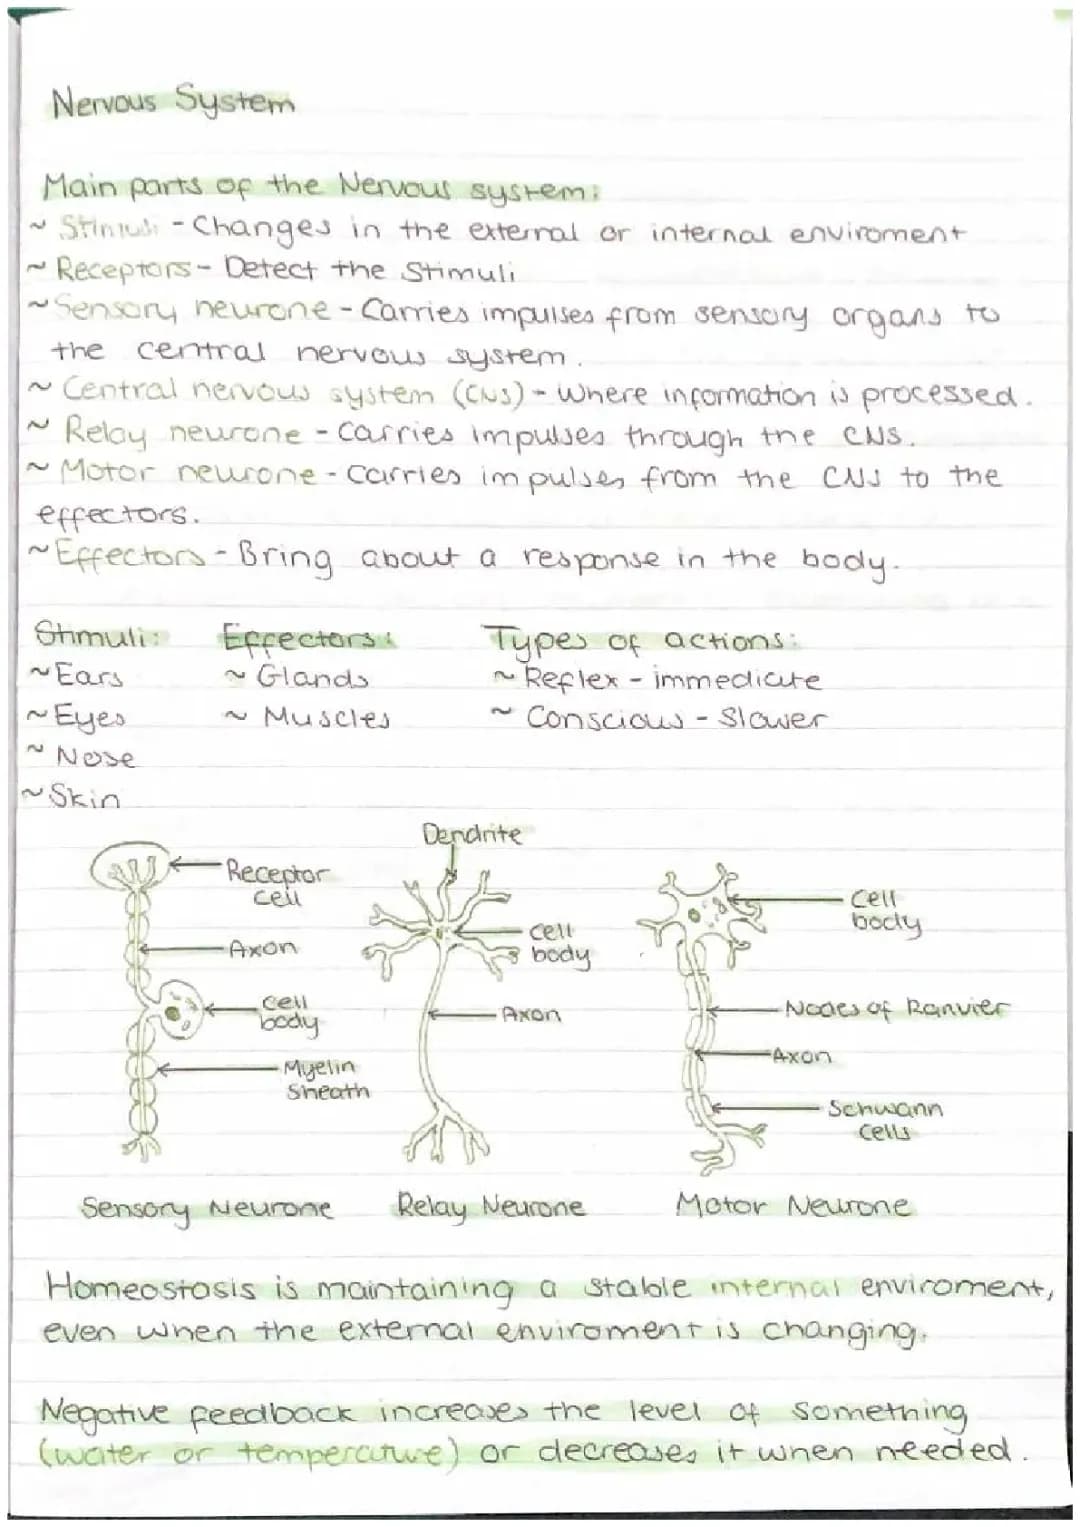 Nervous System
Main parts of the Nervous system:
~ Stimuli - Changes in the external or internal enviroment
~ Receptors - Detect the Stimuli
~ Sensory neurone - Carries impulses from sensory organs to
the central nervous system.
~ Central nervous system (CNS) - Where information is processed.
~ Relay neurone - carries impulses through the CNS.
~ Motor neurone - carries impulses from the CNS to the
effectors.
~ Effectors - Bring about a response in the body.
Stimuli: Effectors: Types of actions:
~ Ears ~ Glands ~ Reflex - immediate
~ Eyes ~ Muscles ~ Conscious - Slower
~ Nose
~ Skin
Dendrite
Receptor
cell
Axon
Cell
body
Myelin
Sheath
Cell
body
Axon
Cell
body
Nodes of Ranvier
Axon
Schwann
Cells
Sensory Neurone Relay Neurone Motor Neurone
Homeostasis is maintaining a stable internal enviroment,
even when the external enviroment is changing.
Negative feedback increases the level of something
(water or temperature) or decreases it when needed.